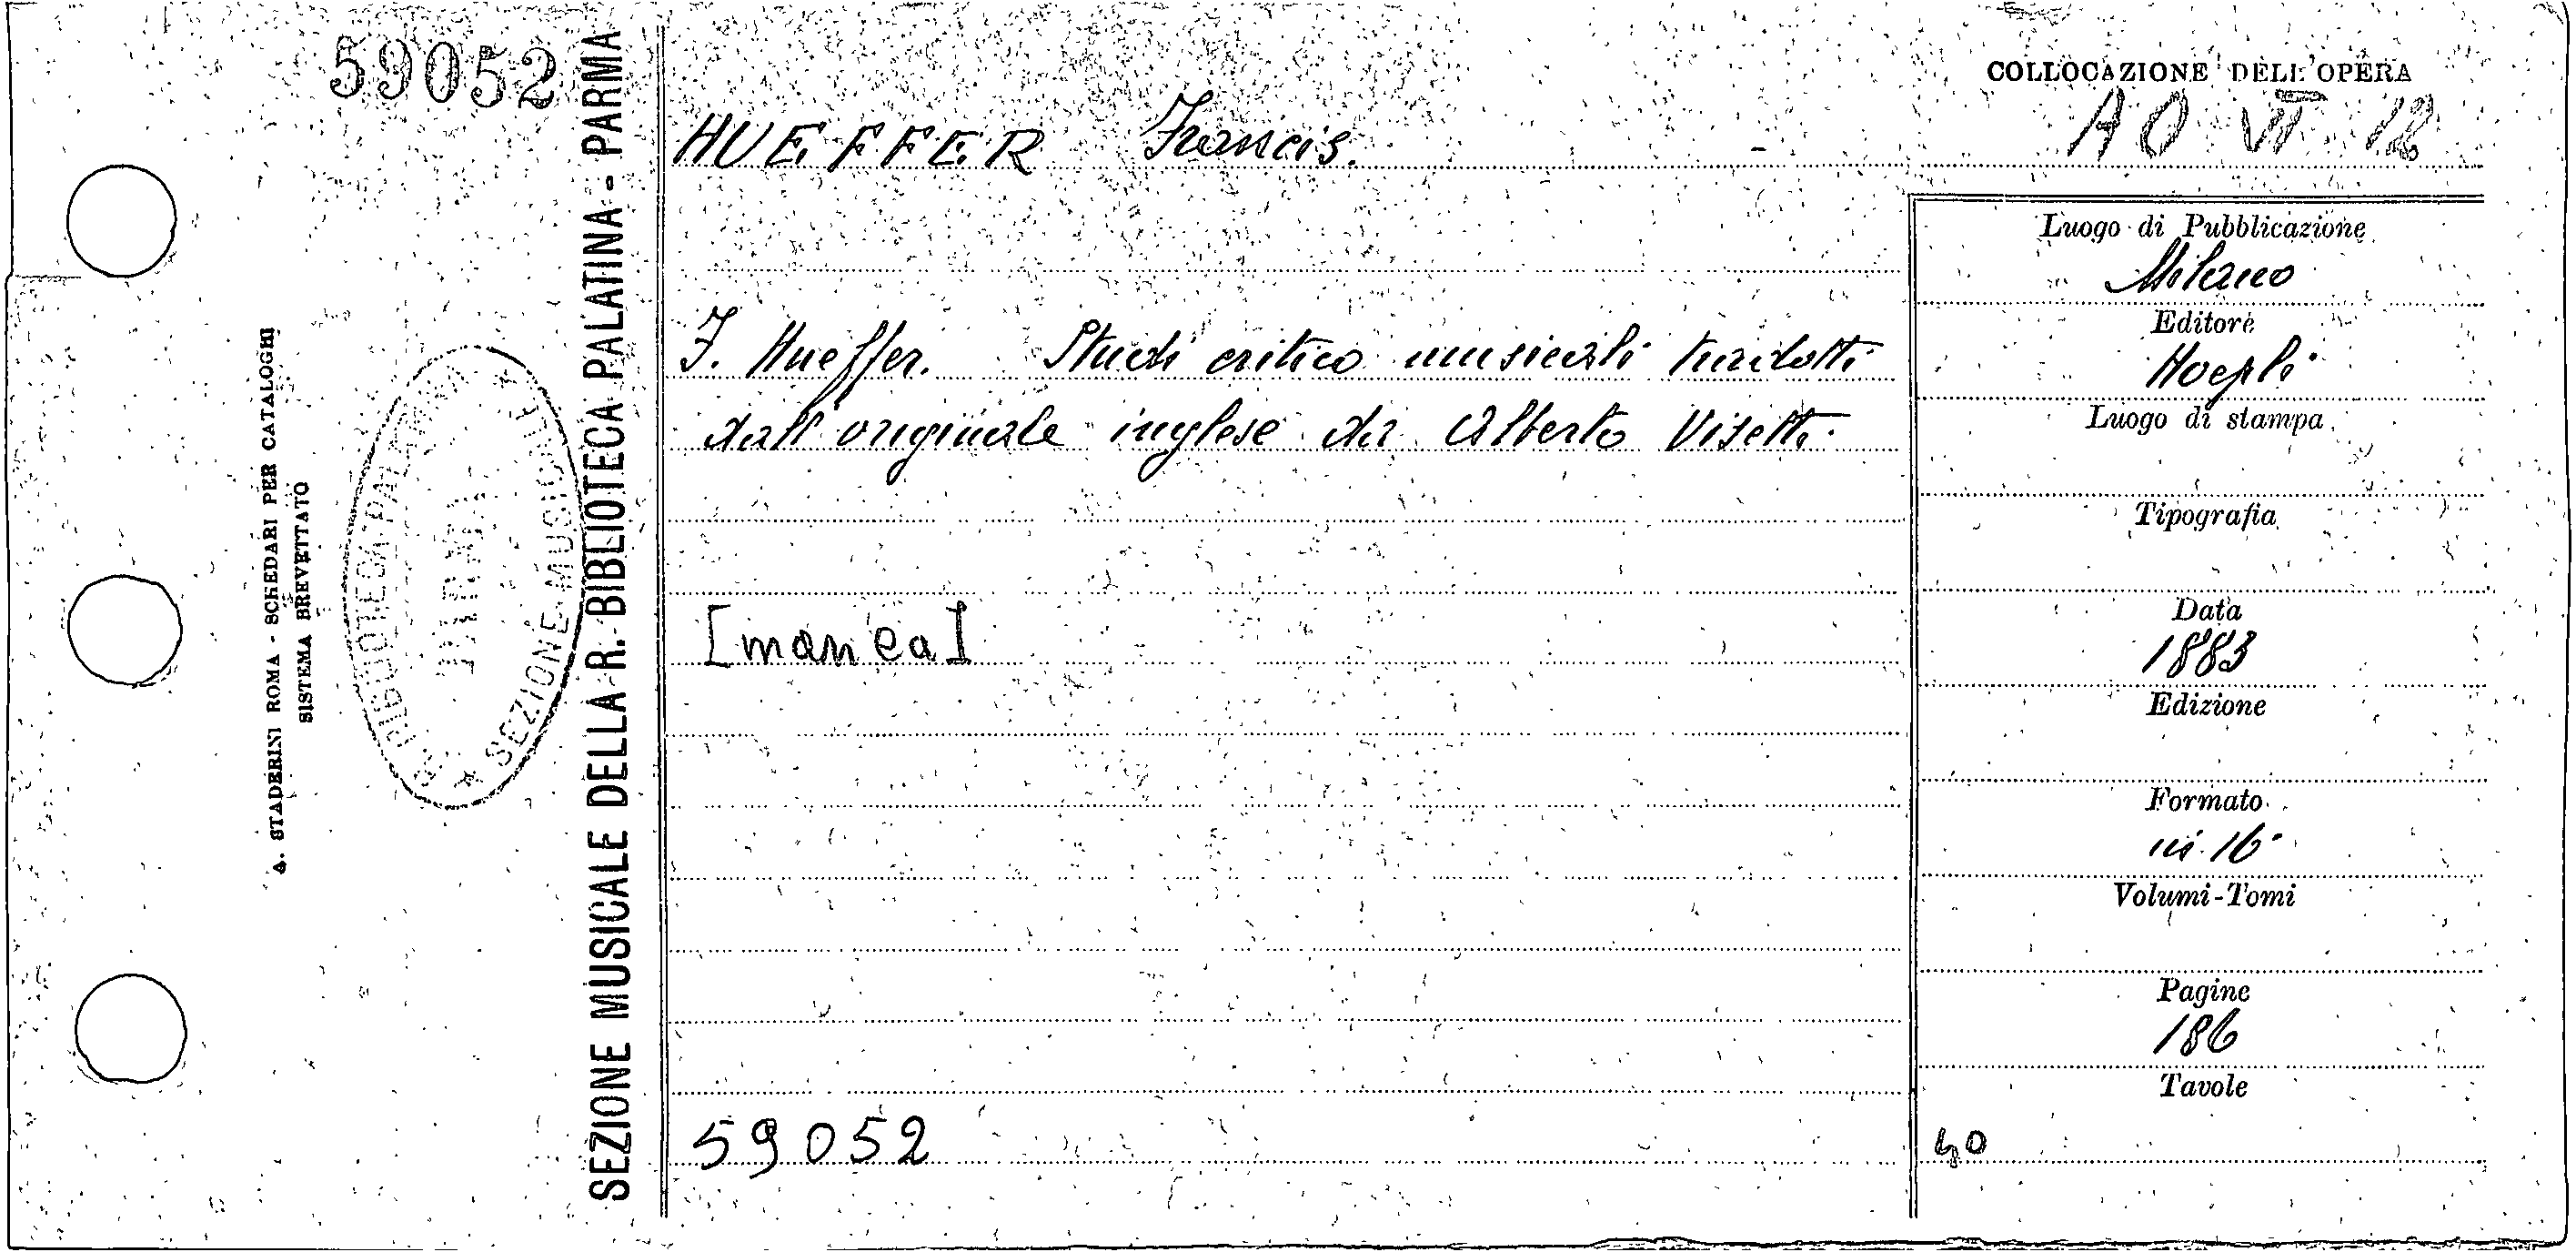 59052
COLLOCAZIONE DELL'OPERA
A O VI 12
HUEFFER Francis.
F. Hueffer. Studi critico musicali tradotti
dall'originale inglese da Alberto Visetti.
[manca]
59052
Luogo di Pubblicazione
Milano
Editore
Hoepli
Luogo di stampa
Tipografia
Data
1883
Edizione
Formato
in 16°
Volumi-Tomi
Pagine
186
Tavole
40
SEZIONE MUSICALE DELLA R. BIBLIOTECA PALATINA - PARMA
A. STADERINI ROMA - SCHEDARI PER CATALOGHI
SISTEMA BREVETTATO
R. BIBLIOTECA PALATINA
PARMA
★ SEZIONE MUSICALE ★